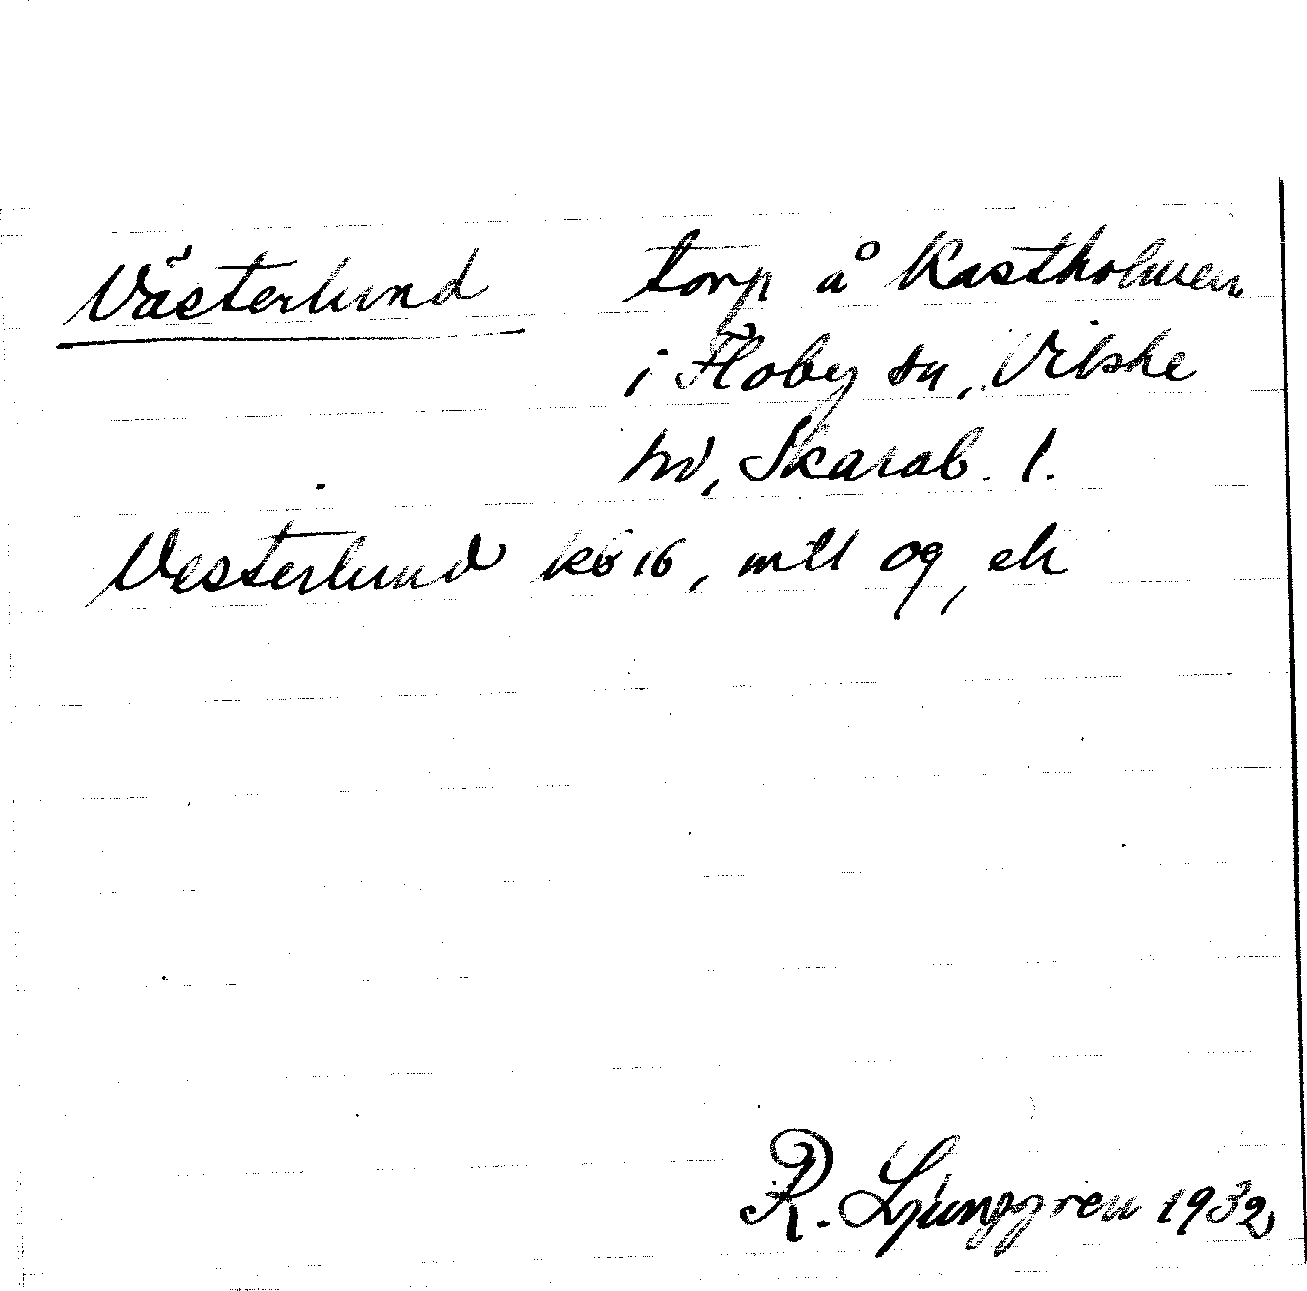 Västerlund torp å Kastholmen
i Floby sn, Vilske
hd, Skarab. l.
Vesterlund kb 16, mtl og, ek
R. Ljunggren 1932